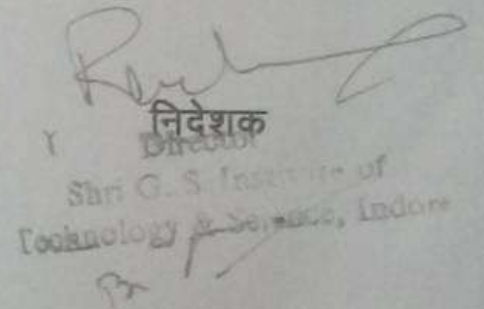 निदेशक
Director
Shri G. S. Institute of
Technology & Science, Indore